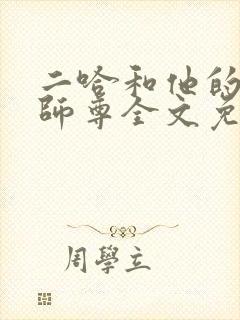 二哈和他的
師尊全文免
周學立